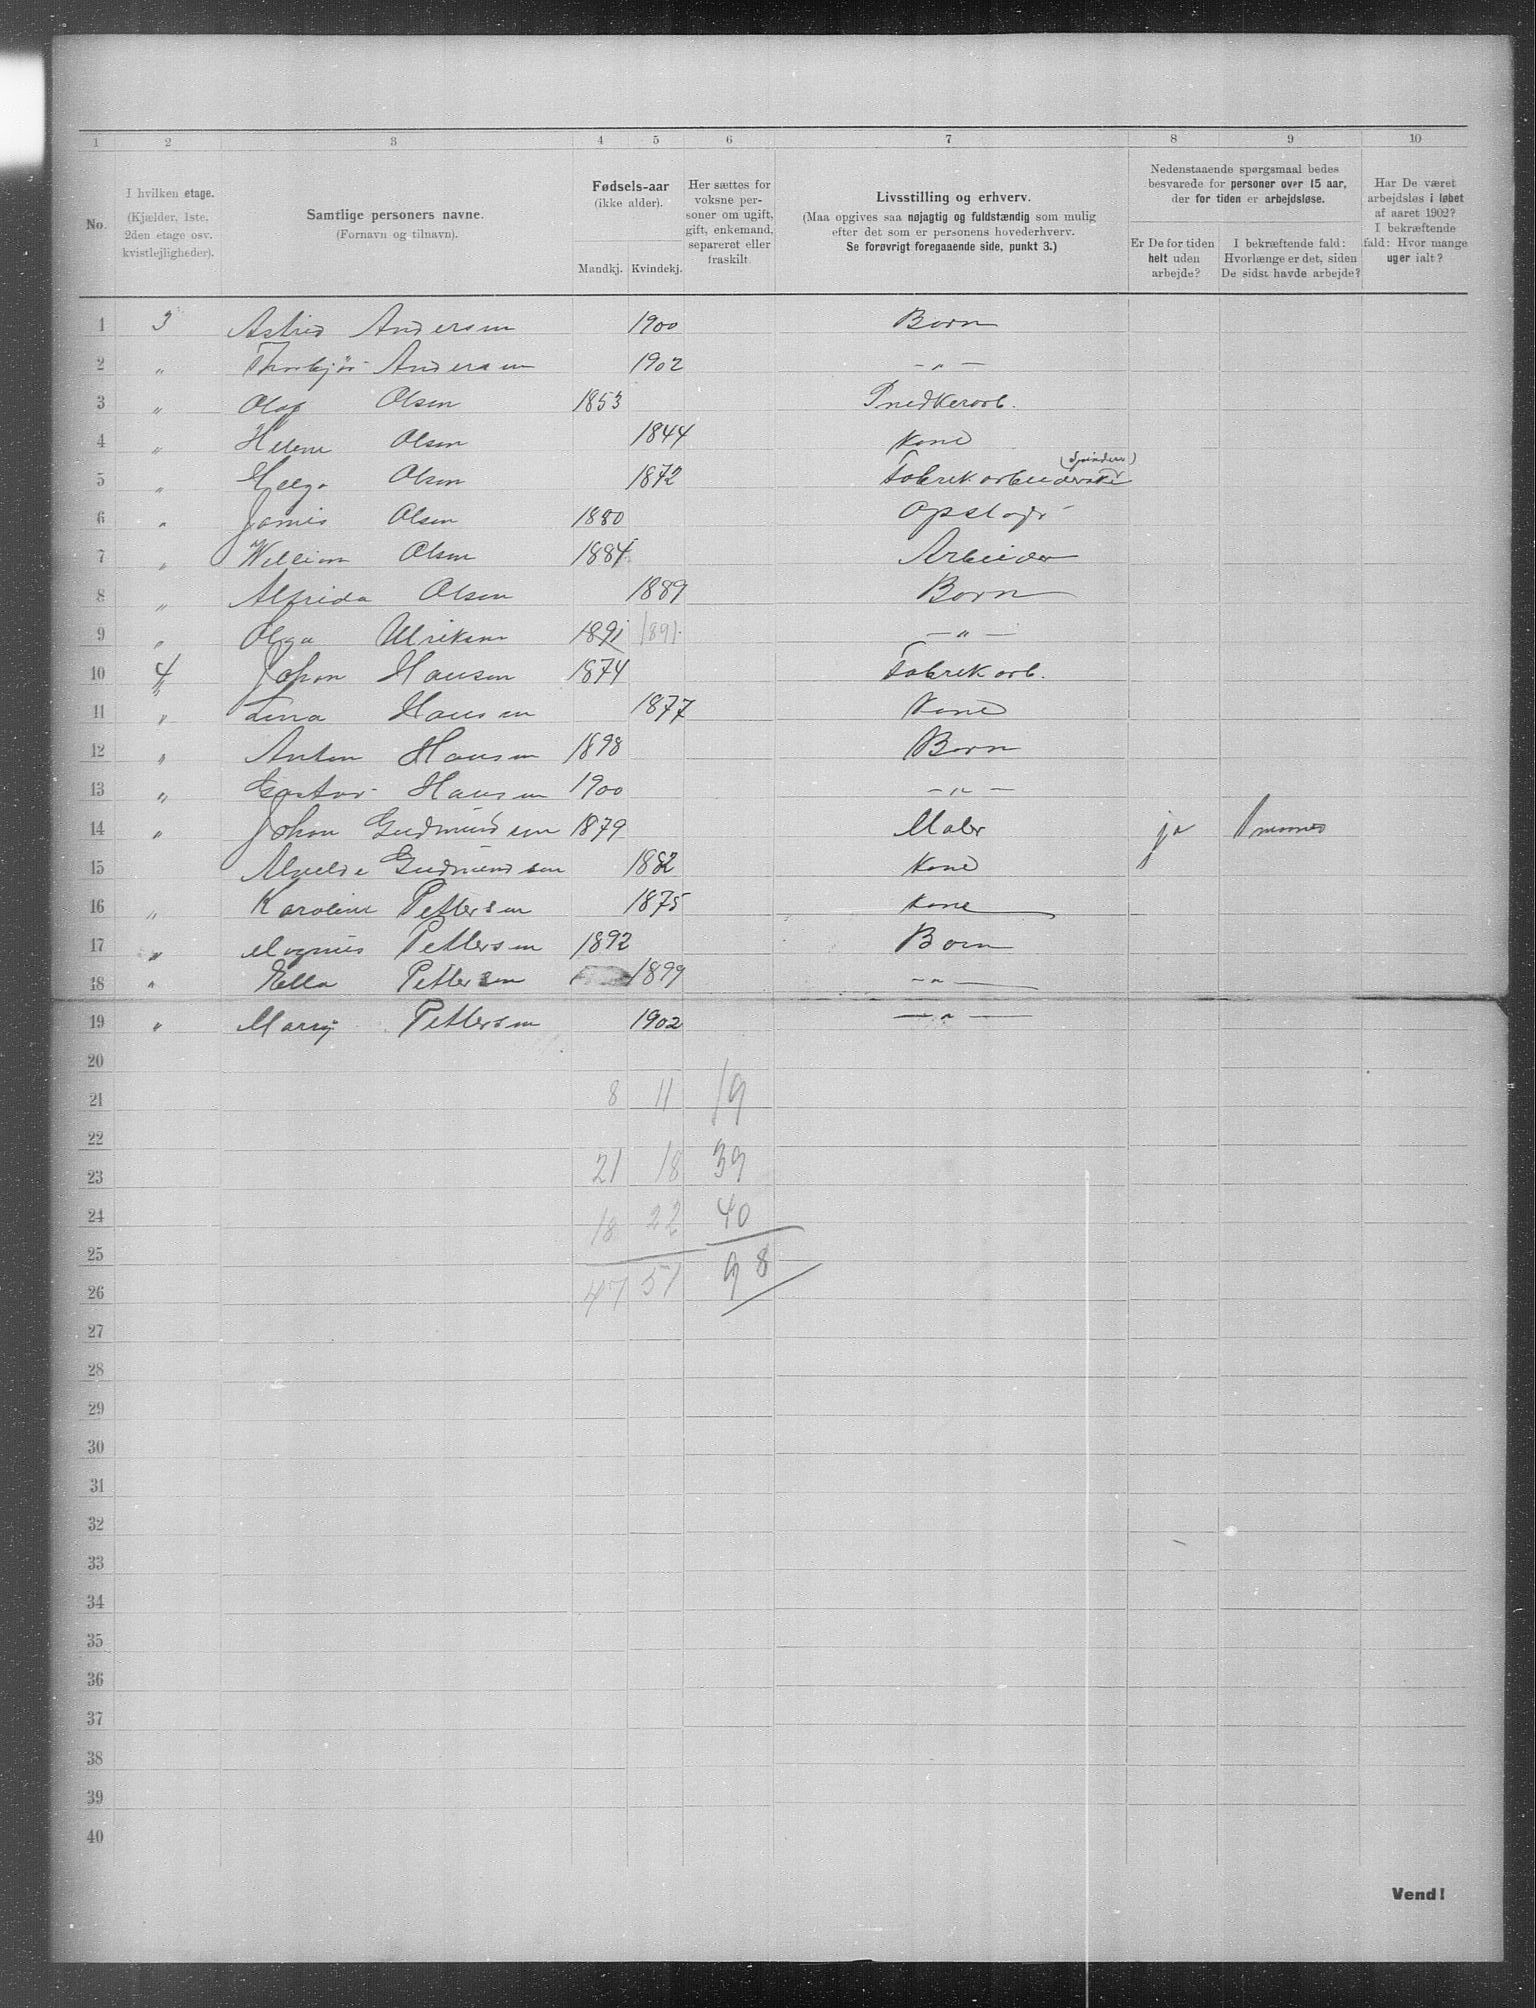 1 2 3 4 5 6 7 8 9 10
No.
I hvilken etage.
(Kjælder, 1ste,
2den etage osv.
kvistlejligheder).
Samtlige personers navne.
(Fornavn og tilnavn).
Fødsels-aar
(ikke alder).
Mandkj. Kvindekj.
Her sættes for
voksne per-
soner om ugift,
gift, enkemand,
separeret eller
fraskilt
Livsstilling og erhverv.
(Maa opgives saa nøjagtig og fuldstændig som mulig
efter det som er personens hovederhverv.
Se forøvrigt foregaaende side, punkt 3.)
Nedenstaaende spørgsmaal bedes
besvarede for personer over 15 aar,
der for tiden er arbejdsløse.
Er De for tiden
helt uden
arbejde?
I bekræftende fald:
Hvorlænge er det, siden
De sidst havde arbejde?
Har De været
arbejdsløs i løbet
af aaret 1902?
I bekræftende
fald: Hvor mange
uger ialt?
1 3 Astrid Andersen 1900 Born
2 " Thorbjør Andersen 1902 - " -
3 " Olaf Olsen 1853 Snedkerarb.
4 " Helene Olsen 1844 Kone
5 " Helga Olsen 1872 Fabrekarbeiderske (Spinderi)
6 " Jamis Olsen 1880
7 " William Olsen 1884 Arbeider
8 " Alfrida Olsen 1889 Born
9 " Olga Ulriksen 1891 1891 - " -
10 4 Johan Hansen 1874 Fabrekarb.
11 " Lina Hansen 1877 Kone
12 " Anton Hansen 1898 Born
13 " Gustav Hansen 1900 - " -
14 " Johan Gudmundsen 1879 Maler ja 1 maaned
15 Gudmundsen 1882 Kone
16 " Karoline Pettersen 1875 Kone
17 " Magnus Pettersen 1892 Born
18 " Ella Pettersen 1899 - " -
19 " Marry Pettersen 1902 - " -
20
21 8 11 19
22
23 21 18 39
24 18 22 40
25
26 47 51 98
27
28
29
30
31
32
33
34
35
36
37
38
39
40
Vend!